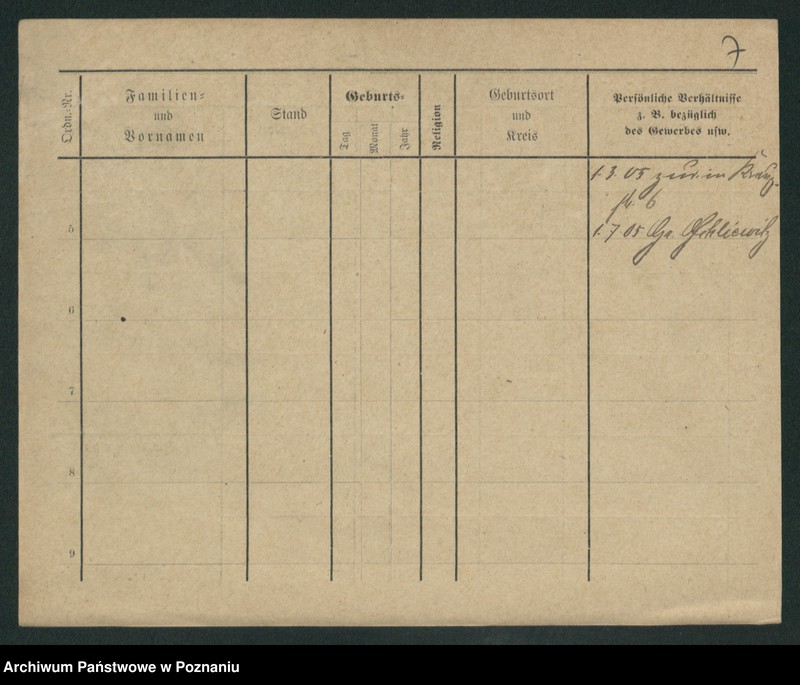 7
Ordn.-Nr.
Familien-
und
Vornamen
Stand
Geburts-
Tag
Monat
Jahr
Religion
Geburtsort
und
Kreis
Persönliche Verhältnisse
z. B. bezüglich
des Gewerbes usw.
1. 3. 05 in
6
1. 7. 05 Gr.
5
6
7
8
9
Archiwum Państwowe w Poznaniu